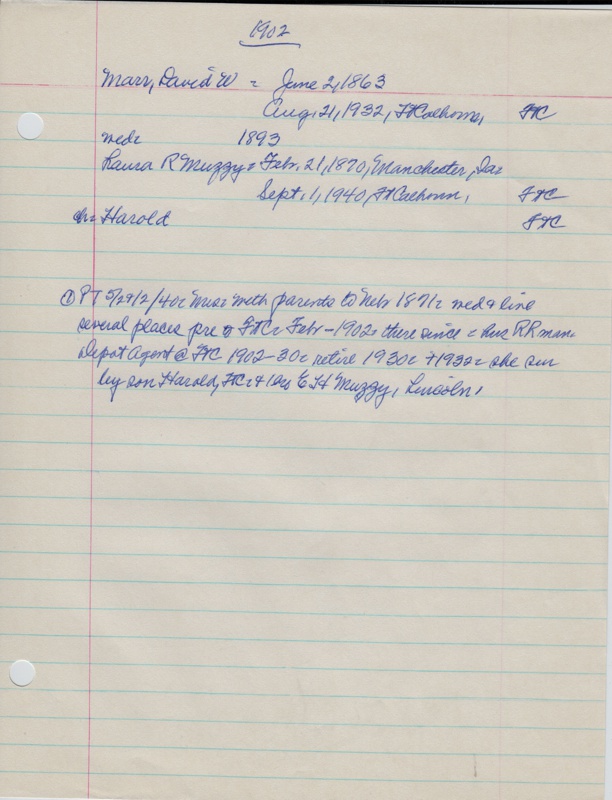 1902
Marr, David W = June 2, 1863
Aug. 21, 1932, Ft Calhoun, FTC
med: 1893
Laura R Muzzy = Febr. 21, 1870, Manchester, Ia=
Sept. 1, 1940, Ft Calhoun, FTC
ch= Harold FTC
① PT 9/2/40= Mrs= with parents to Nebr 1871= med & live
several places pre FTC= Febr - 1902= there since = hus RR man=
Depot Agent @ FTC 1902-30= retire 1930= +1932= she sur
by son Harold, FTC= + bro E H Muzzy, Lincoln,